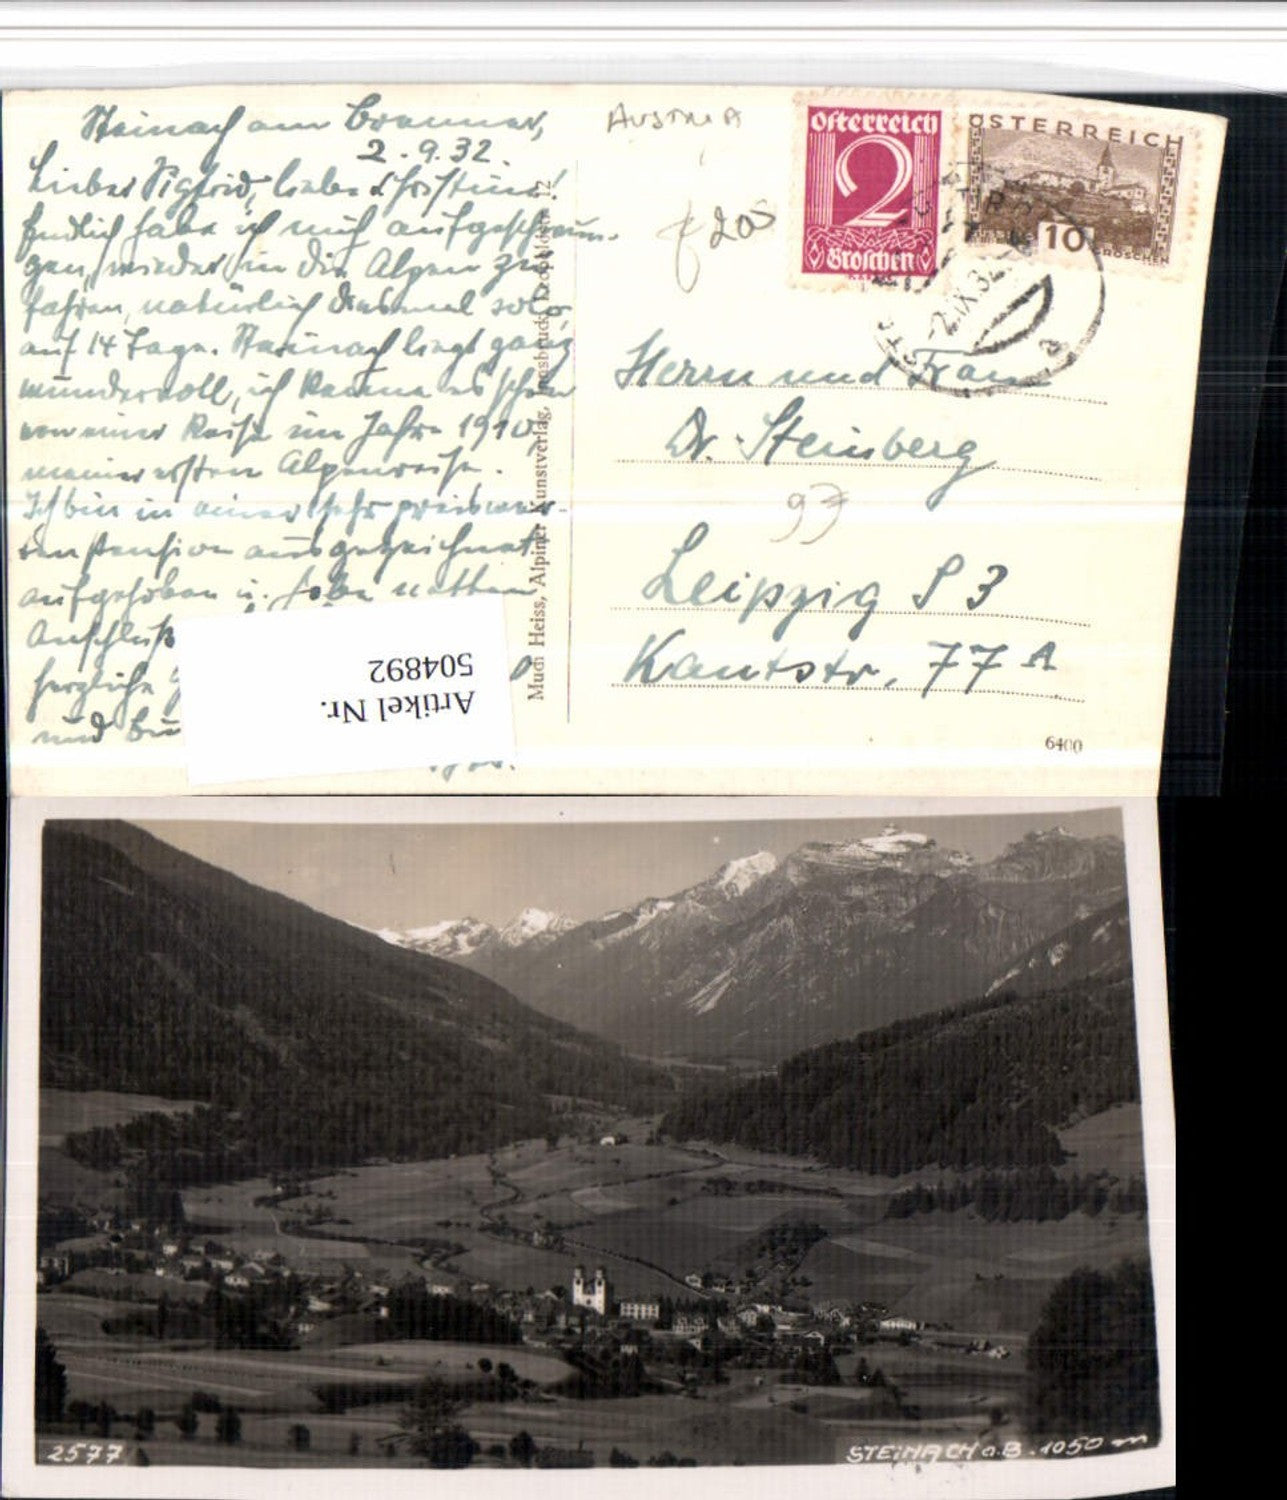 Steinach am Brenner,
2.9.32.
Lieber Sigfrid, liebe Christine!
Endlich habe ich mich aufgeschwun-
gen, wieder in die Alpen zu
fahren, natürlich diesmal solo
auf 14 Tage. Steinach liegt ganz
wundervoll, ich kenne es schon
von einer Reise im Jahre 1910,
meiner ersten Alpenreise.
Ich bin in einer sehr preiswer-
ten Pension ausgezeichnet
aufgehoben u. habe netten
Anschluß
herzliche
und
Artikel Nr.
504892
Mudi Heiss, Alpiner Kunstverlag, Innsbruck, Leopoldstr. 12
AUSTRIA
f 205
Österreich
2
Groschen
ÖSTERREICH
10
GROSCHEN
-2.IX.32
Herrn und Frau
Dr. Steinberg
97
Leipzig S 3
Kantstr. 77 A
6400
2577
STEINACH a.B. 1050 m